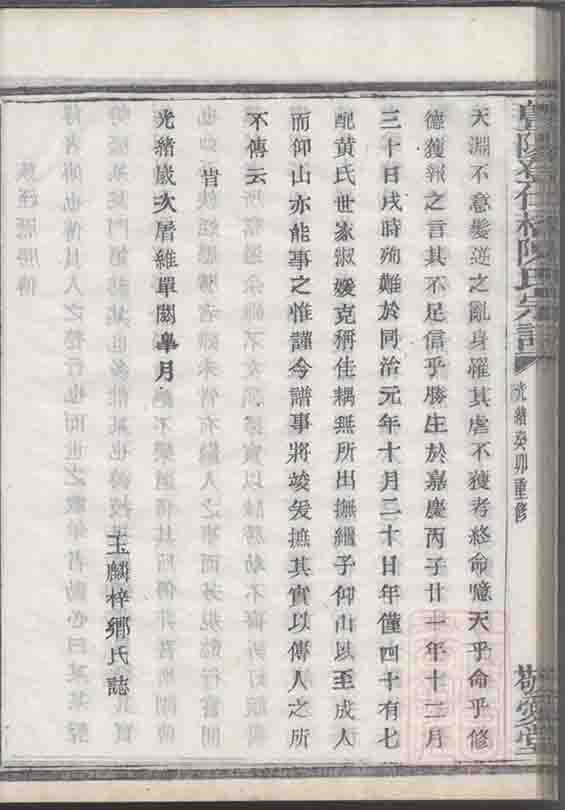 陽 陳氏宗譜
光緒癸卯重修
敬愛堂
天淵不意髮逆之亂身罹其虐不獲考終命噫天乎命乎修
德獲報之言其不足信乎勝生於嘉慶丙子廿一年十二月
三十日戌時殉難於同治元年十月二十日年僅四十有七
配黃氏世家淑媛克稱佳耦無所出撫繼子仰山以至成人
而仰山亦能事之惟謹今譜事將竣爰摭其實以傳人之所
不傳云
旹
光緒歲次屠維單閼皐月
玉麟梓鄉氏誌